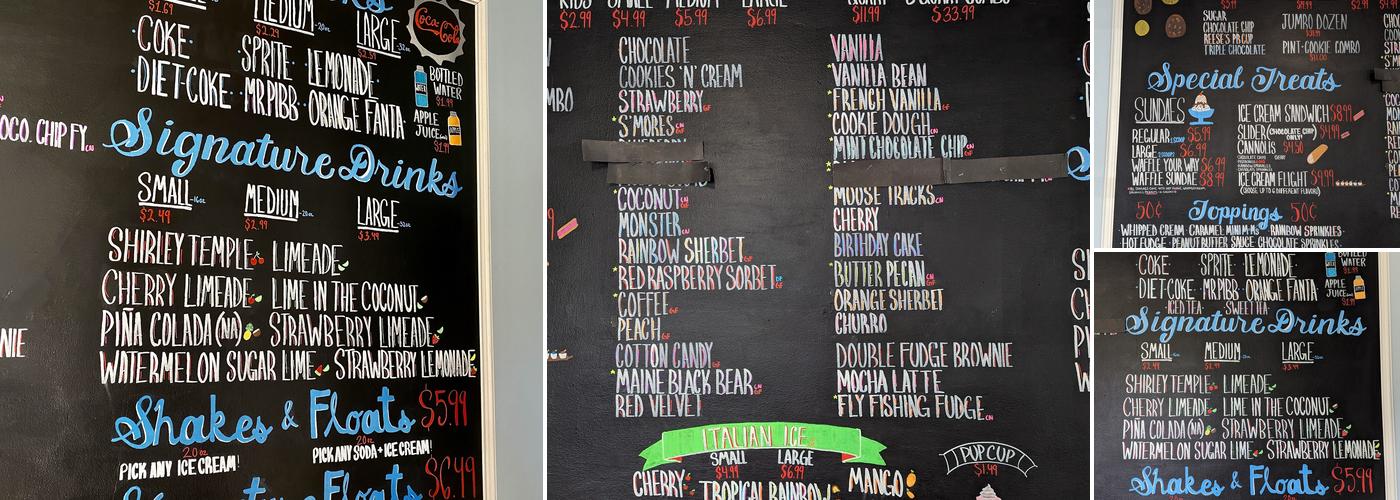 MEDIUM -20oz LARGE -32oz
$1.69 $2.29 $2.51
Coca-Cola
COKE SPRITE LEMONADE
DIET-COKE MR PIBB ORANGE FANTA
BOTTLED WATER $1.99
APPLE JUICE $1.99
OCO. CHIP FY. CN
Signature Drinks
SMALL -16oz MEDIUM -20oz LARGE -32oz
$2.49 $2.99 $3.49
SHIRLEY TEMPLE LIMEADE
CHERRY LIMEADE LIME IN THE COCONUT
PIÑA COLADA (NA) STRAWBERRY LIMEADE
WATERMELON SUGAR LIME STRAWBERRY LEMONADE
NIE
Shakes & Floats $5.99
20oz
PICK ANY ICE CREAM! PICK ANY SODA + ICE CREAM!
$6.49
$2.99 $4.99 $5.99 $6.99 $11.99 $33.99
CHOCOLATE
COOKIES 'N' CREAM
STRAWBERRY GF
S'MORES CN GF
COCONUT CN GF
MONSTER CN
RAINBOW SHERBET GF
RED RASPBERRY SORBET DF GF
COFFEE GF
PEACH GF
COTTON CANDY GF
MAINE BLACK BEAR CN GF
RED VELVET
VANILLA
VANILLA BEAN
FRENCH VANILLA GF
COOKIE DOUGH CN
MINT CHOCOLATE CHIP CN GF
MOOSE TRACKS CN
CHERRY
BIRTHDAY CAKE
BUTTER PECAN CN GF
ORANGE SHERBET
CHURRO
DOUBLE FUDGE BROWNIE
MOCHA LATTE
FLY FISHING FUDGE CN
ITALIAN ICE
SMALL LARGE
$4.99 $6.99
CHERRY TROPICAL RAINBOW MANGO
PUP CUP
$1.99
SUGAR
CHOCOLATE CHIP
REESE'S PB CUP
TRIPLE CHOCOLATE
JUMBO DOZEN
PINT-COOKIE COMBO
$11.00
Special Treats
SUNDAES
REGULAR 1 SCOOP $5.99
LARGE 2 SCOOPS $6.99
WAFFLE YOUR WAY $6.99
WAFFLE SUNDAE $8.99
ICE CREAM SANDWICH $8.99
SLIDER (CHOCOLATE CHIP ONLY) $4.99
CANNOLIS $4.50
ICE CREAM FLIGHT $9.99
(CHOOSE UP TO 6 DIFFERENT FLAVORS)
50¢ Toppings 50¢
WHIPPED CREAM · CARAMEL MINI M·Ms RAINBOW SPRINKLES
HOT FUDGE · PEANUT BUTTER SAUCE CHOCOLATE SPRINKLES
COKE SPRITE LEMONADE
DIET-COKE MR PIBB ORANGE FANTA
ICED TEA SWEET TEA
BOTTLED WATER $1.99
APPLE JUICE $1.99
Signature Drinks
SMALL MEDIUM LARGE
$2.49 $2.99 $3.49
SHIRLEY TEMPLE LIMEADE
CHERRY LIMEADE LIME IN THE COCONUT
PIÑA COLADA (NA) STRAWBERRY LIMEADE
WATERMELON SUGAR LIME STRAWBERRY LEMONADE
Shakes & Floats $5.99